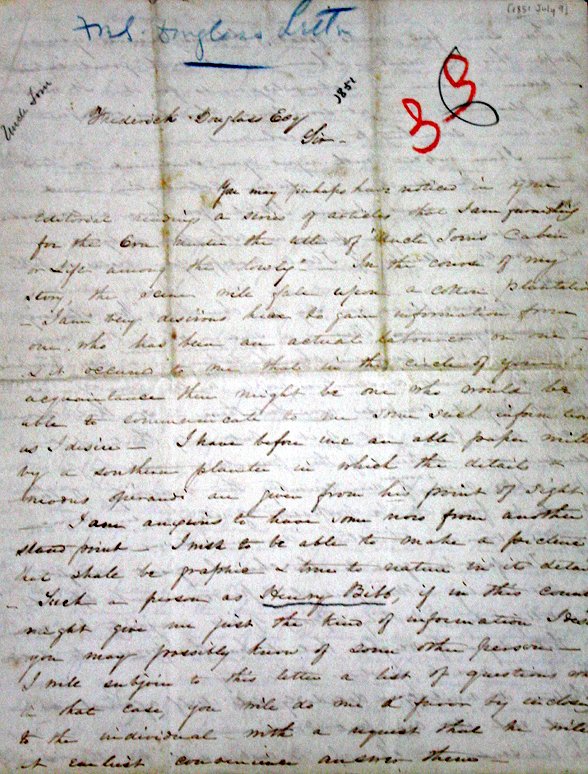 [1851 July 9]
Fred. Douglass
Uncle Tom
1851
Frederick Douglass Esq
Sir –
You may perhaps have noticed in your
editorial a series of articles that I am furnishing
for the Era under the title of "Uncle Tom's Cabin
or Life among the lowly" – In the course of my
story, the scene will fall upon a cotton plantation
– I am very desirous to gain information from
one who has been an actual labourer on one –
& it occurs to me that in the circle of your
acquaintance there might be one who would be
able to communicate to me some such information
as I desire – I have before me an able paper written
by a southern planter in which the details &
modus operandi are given from his point of sight
– I am anxious to have some more from another
stand point – I wish to be able to make a picture
that shall be graphic & true to nature in its details
– Such a person as Henry Bibb, if in this country
might give me just the kind of information I desire
you may possibly know of some other person –
I will subjoin to this letter a list of questions
in that case, you will do me a favor by inclosing
to the individual with a request that he will
at earliest convenience answer them –